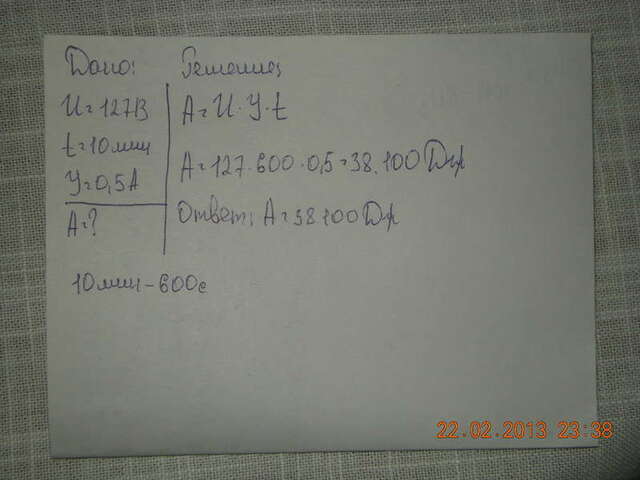 Дано:
U=127В
t=10мин
У=0,5А
А=?
10мин-600с
Решение;
А=U·У·t
А=127·600·0,5=38.100Дж
Ответ; А=38100Дж
22.02.2013 23:38